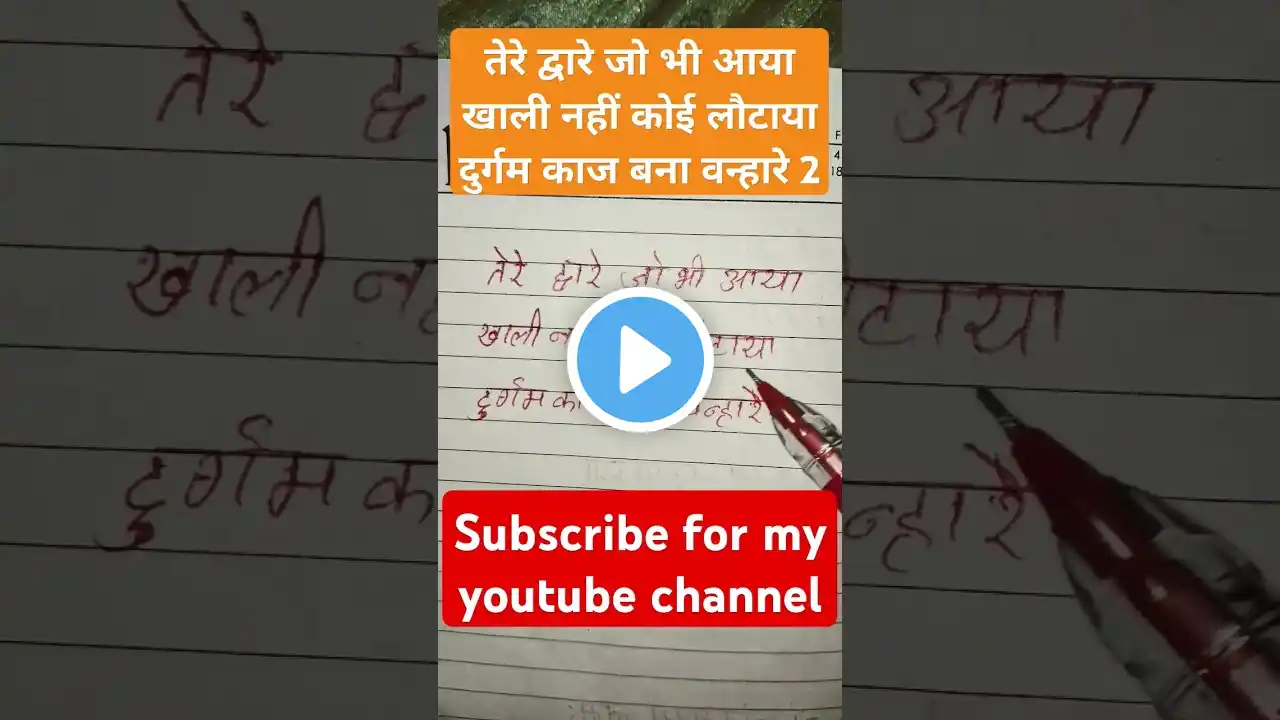 तेरे द्वारे जो भी आया
खाली नहीं कोई लौटाया
दुर्गम काज बना वन्हारे 2
तेरे द्वारे जो भी आया
खाली
दुर्गम का
Subscribe for my
youtube channel